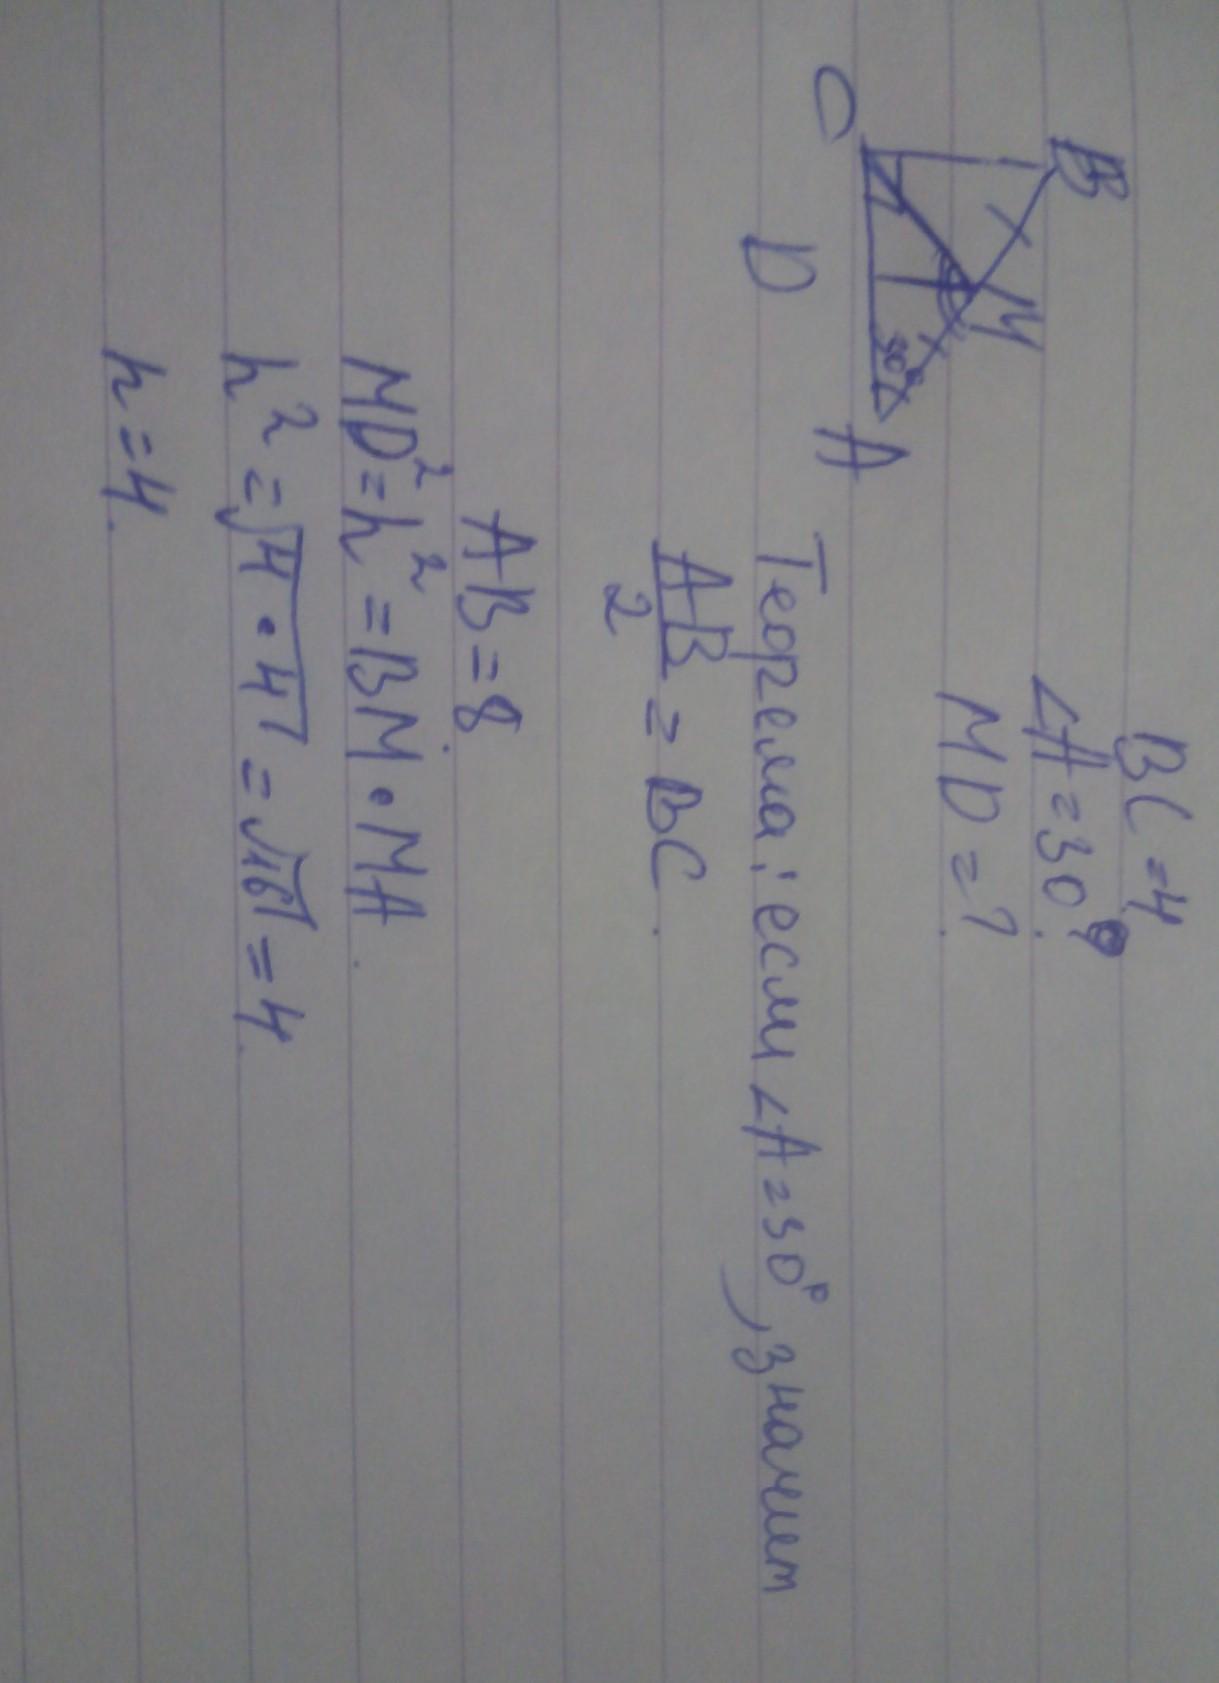 B
M
C
D
30°
A
BC = 4
∠A = 30°.
MD = ?
Теорема: если ∠A = 30°, значит
AB/2 = BC.
AB = 8.
MD² = h² = BM · MA.
h² = √4·4 = √16 = 4.
h = 4.